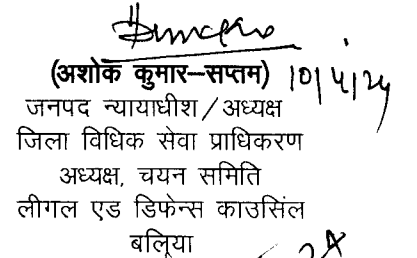 (अशोक कुमार–सप्तम) 10/4/24
जनपद न्यायाधीश/अध्यक्ष
जिला विधिक सेवा प्राधिकरण
अध्यक्ष, चयन समिति
लीगल एड डिफेन्स काउसिंल
बलिया